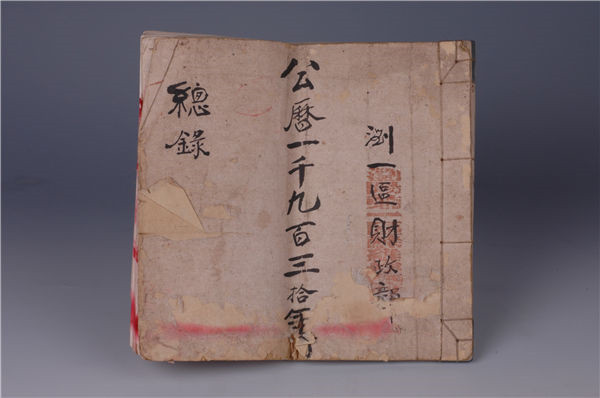 瀏一區財政部
公曆一千九百三拾年
總錄